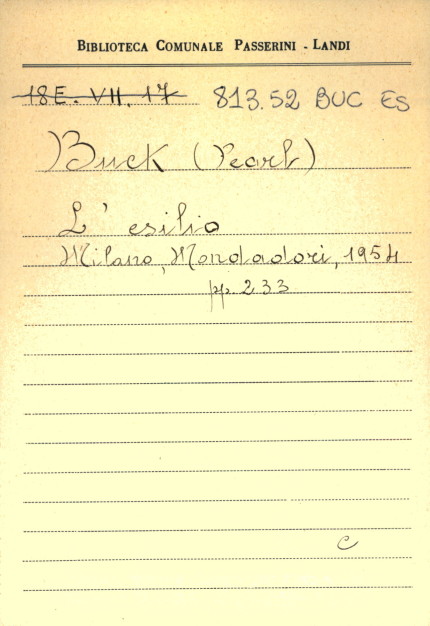 BIBLIOTECA COMUNALE PASSERINI - LANDI
18E. VII. 17 813.52 BUC ES
Buck (Pearl)
L' esilio
Milano, Mondadori, 1954
pp. 233
C